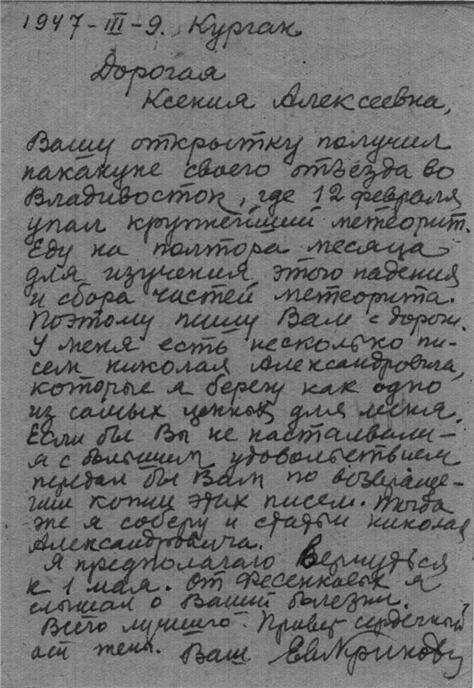 1947-III-9. Курган
Дорогая
Ксения Алексеевна,
Вашу открытку получил
накануне своего отъезда во
Владивосток, где 12 февраля
упал крупнейший метеорит.
Еду на полтора месяца
для изучения этого падения
и сбора частей метеорита.
Поэтому пишу Вам с дороги.
У меня есть несколько пи-
сем Николая Александровича,
которые я берегу как одно
из самых ценных для меня.
Если бы Вы не настаивали -
я с большим удовольствием
передал бы Вам по возвраще-
нии копии этих писем. Тогда
же я соберу и статьи Николая
Александровича.
Я предполагаю вернуться
к 1 мая. От Фесенковых я
слышал о Вашей болезни.
Всего лучшего. Привет сердечный
от жены. Ваш ЕвлКринов